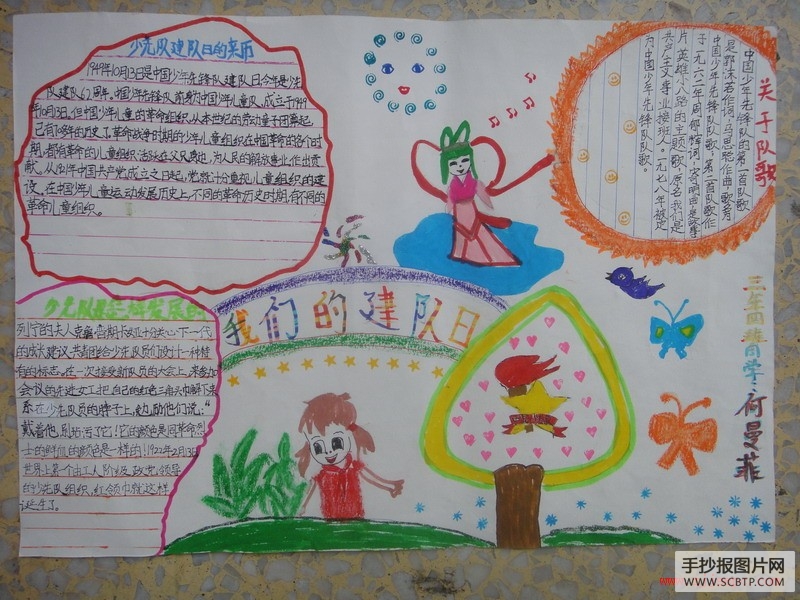 少先队建队日的来历
1949年10月13日是中国少年先锋队建队日今年是少先
队建队62周年。中国少年先锋队前身为中国少年儿童队,成立于1949
年10月13日。但中国少年儿童的革命组织,从本世纪的劳动童子团算起
已有
年的历史了。革命战争时期的少年儿童组织在中国革命的各个时
期,都有革命的儿童组织活跃在
为人民的解放事业作出贡
献。从
中国共产党成立之日起,党就十分重视儿童组织的建
设。在中国少年儿童运动发展历史上,不同的革命历史时期,有不同的
革命儿童组织。
关于队歌
中国少年先锋队的第一首队歌
是郭沫若作词,马思聪作曲
中国少年先锋队队歌。第一首队歌作
于一九六二年,周郁辉词,寄明曲是故事
片英雄小八路的主题歌,原名我们是
共产主义事业接班人。一九七八年被定
为中国少年先锋队队歌。
我们的建队日
少先队
发展的
列宁的夫人克鲁普斯卡娅十分关心下一代
的成长建议共青团给少先队员们设计一种特
有的标志。在一次接受新队员的大会上,来参加
会议的先进女工把自己的红色三角头巾解下来
系在少先队员的脖子上,勉励他们说:“
戴着他,别玷污了它!它的颜色是同革命烈
士的鲜血的颜色是一样的!1922年2月13日
世界上第一个由工人阶级及政党领导
的少先队组织,红领巾就这样
诞生了。
三年四班同学:
曼菲
手抄报图片网
WWW.SCBTP.COM